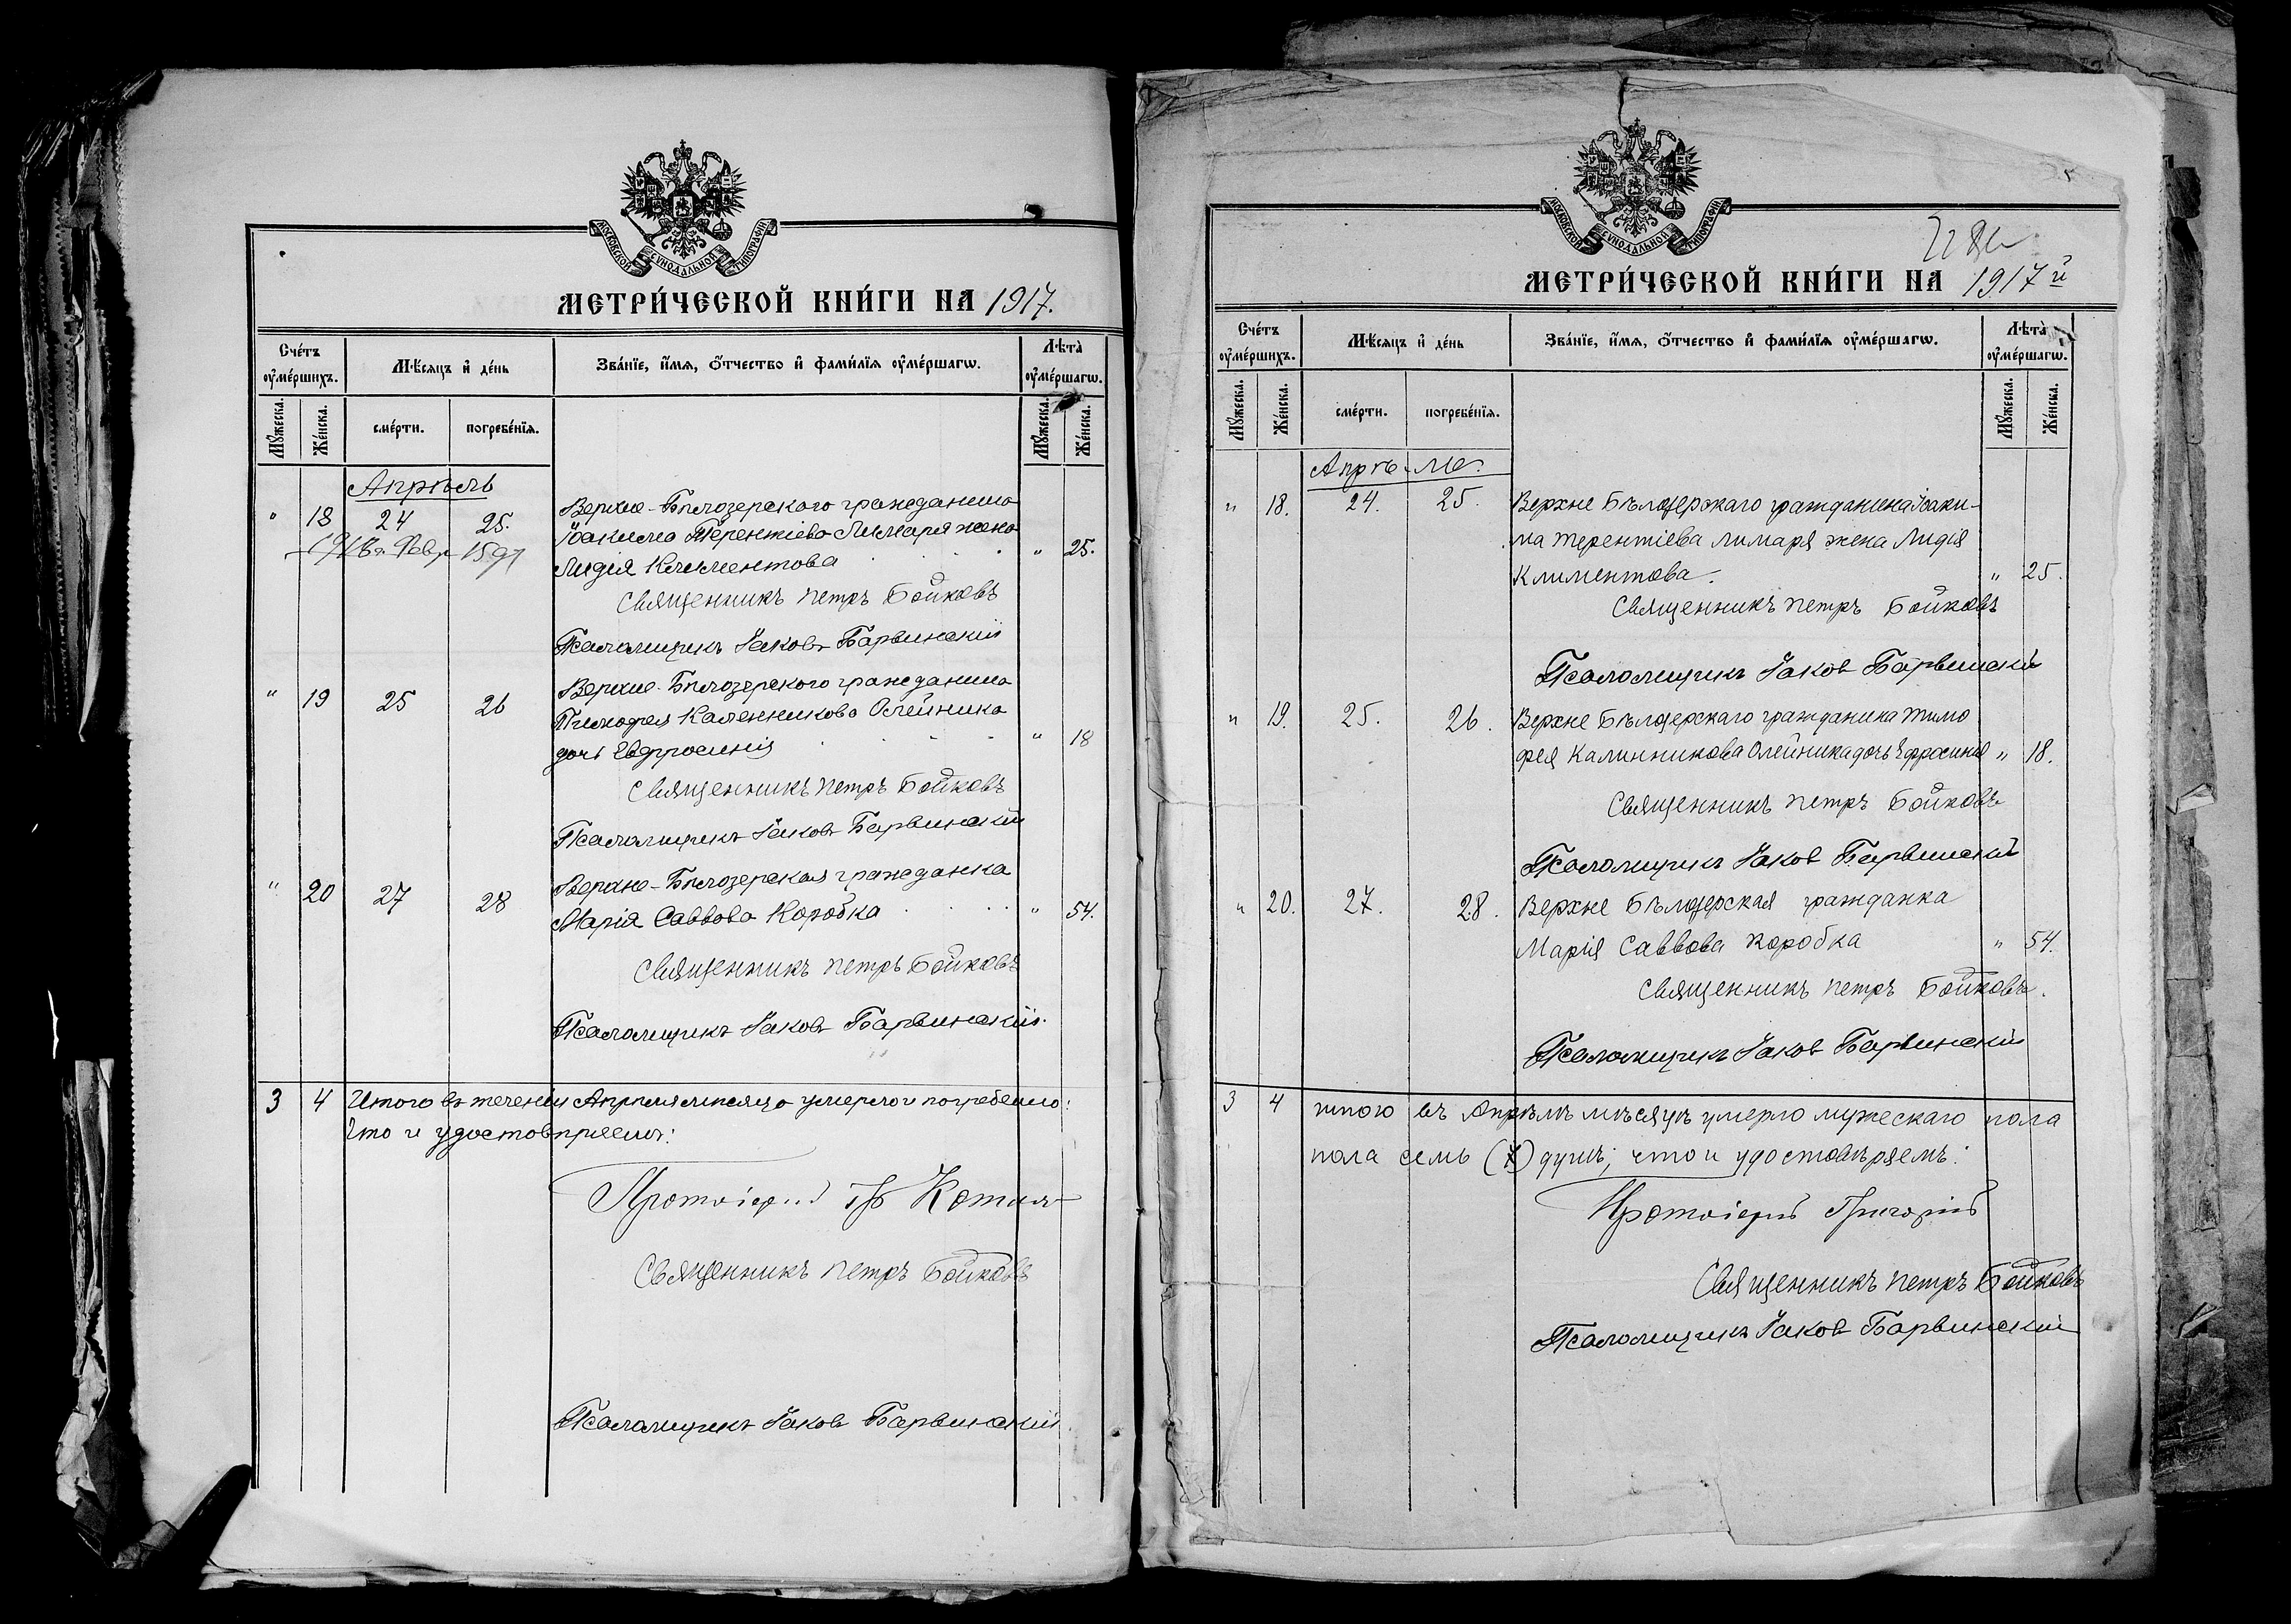 МОСКОВСКОЙ СѴНОДАЛЬНОЙ ТИПОГРАФІИ
МЕТРИ́ЧЕСКОЙ КНИ́ГИ НА 1917.
Сче́тъ оу҆ме́ршихъ.
Мѣ́сяцъ и҆ де́нь
Зва́нїе, и҆́мѧ, ѻ҆́тчество и҆ фами́лїѧ оу҆ме́ршагѡ.
Лѣта̀ оу҆ме́ршагѡ.
Мꙋ́жеска.
Же́нска.
сме́рти.
погребе́нїѧ.
Мꙋ́жеска.
Же́нска.
Апрѣль
" 18 24 25. Верхне-Бѣлозерскаго гражданина
Іоакима Терентіева Лимаря жена
Лидія Климентова " 25.
Священникъ Петръ Бойковъ
Псаломщикъ Іаковъ Барвинскій
" 19 25 26 Верхне-Бѣлозерскаго гражданина
Тимофея Калинникова Олейника
дочь Евфросинія " 18
Священникъ Петръ Бойковъ
Псаломщикъ Іаковъ Барвинскій
" 20 27 28 Верхне-Бѣлозерская гражданка
Марія Саввова Коробка " 54.
Священникъ Петръ Бойковъ
Псаломщикъ Іаковъ Барвинскій.
3 4 Итого въ теченіи Апрѣля мѣсяца умерло и погребено:
Что и удостовѣряемъ:
Протоіерей
Священникъ Петръ Бойковъ
Псаломщикъ Іаковъ Барвинскій
МОСКОВСКОЙ СѴНОДАЛЬНОЙ ТИПОГРАФІИ
МЕТРИ́ЧЕСКОЙ КНИ́ГИ НА 1917й
Сче́тъ оу҆ме́ршихъ.
Мѣ́сяцъ и҆ де́нь
Зва́нїе, и҆́мѧ, ѻ҆́тчество и҆ фами́лїѧ оу҆ме́ршагѡ.
Лѣта̀ оу҆ме́ршагѡ.
Мꙋ́жеска.
Же́нска.
сме́рти.
погребе́нїѧ.
Мꙋ́жеска.
Же́нска.
" 18. 24. 25. Верхне Бѣлозерскаго гражданина Іоаки-
ма Терентіева Лимаря жена Лидія
Климентова. " 25.
Священникъ Петръ Бойковъ
Псаломщикъ Іаков Барвинскій
" 19. 25. 26. Верхне Бѣлозерскаго гражданина Тимо
фея Калинникова Олейника дочь Ефросинія " 18.
Священникъ Петръ Бойковъ
Псаломщикъ Іаков Барвинскій
" 20. 27. 28. Верхне Бѣлозерская гражданка
Марія Саввова Коробка " 54.
Священникъ Петръ Бойковъ.
Псаломщикъ Іаков Барвинскій
3 4 итого въ Апрѣлѣ мѣсяцѣ умерло мужескаго пола
пола семь (7) душъ; что и удостовѣряемъ:
Протоіерей Григорій
Священникъ Петръ Бойковъ
Псаломщикъ Іаков Барвинскій